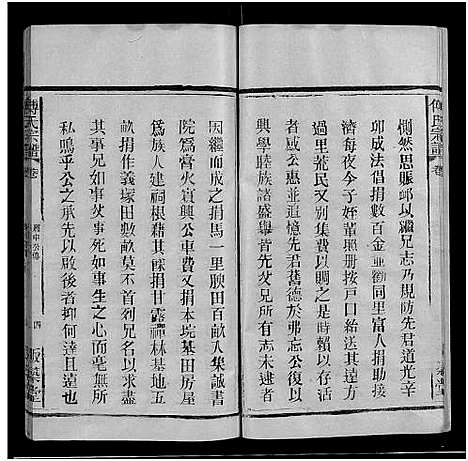 惻然思賑卹以繼兄志乃規防先君道光辛
卯成法倡捐數百金並勸同里富人捐助接
濟每夜令子姪輩照册按戶口給資其遠方
過里茕民又別出資費以時賙之所以存活
者公志公惠並追憶先君舊德於弗忘公復以
興學睦族諸盛舉首先父兄所有志未逮者
因繼而成之捐馬一里腴田百畝入集誠書
院爲膏火賓興公車費又捐本垸基田房屋
爲族人建祠根藉其餘捐甘露禪林基地五
畝捐作義塚田數畝莫不各如其名以求盡
其實如事死如事生之心而毫無所
私嗚乎公之承先以啟後者抑何達且遠也
傅氏宗譜
卷
四
版築堂
傅氏宗譜
卷